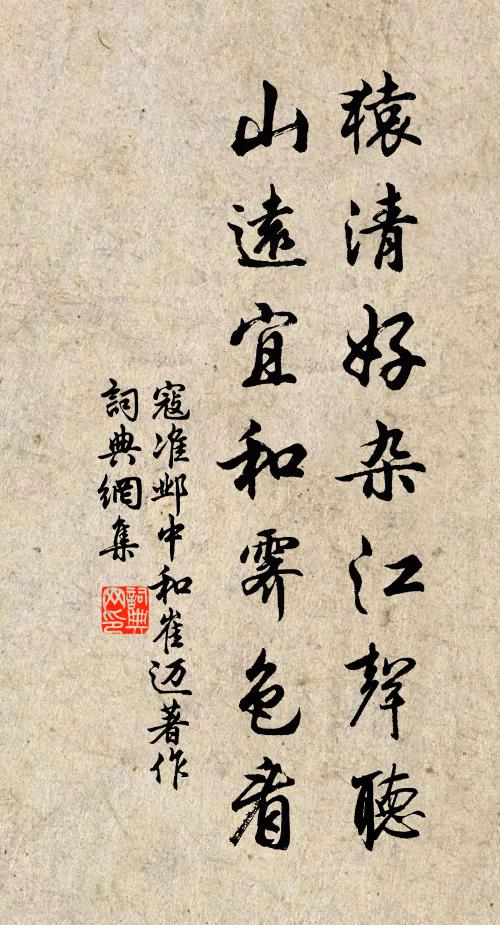 猿清好杂江聲聽
山遠宜和霽色看
寇准邺中和崔迈著作
詞典網集
詞典网印